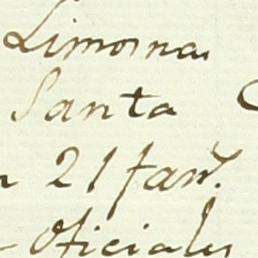 Limosna
Santa
21 fan.
Oficiales